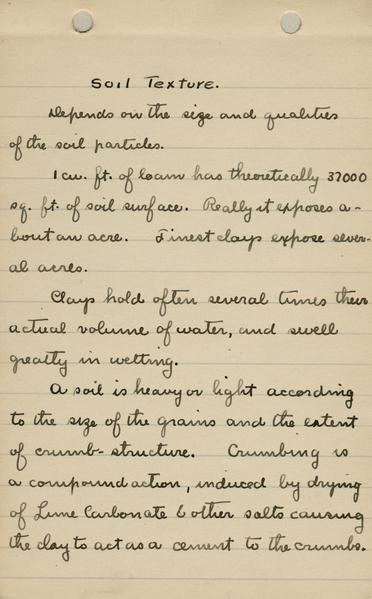 Soil Texture.
Depends on the size and qualities
of the soil particles.
1 cu. ft. of loam has theoretically 37000
sq. ft. of soil surface. Really it exposes a-
bout an acre. Finest clays expose sever-
al acres.
Clays hold often several times their
actual volume of water, and swell
greatly in wetting.
A soil is heavy or light according
to the size of the grains and the extent
of crumb-structure. Crumbing is
a compound action, induced by drying
of Lime Carbonate & other salts causing
the clay to act as a cement to the crumbs.